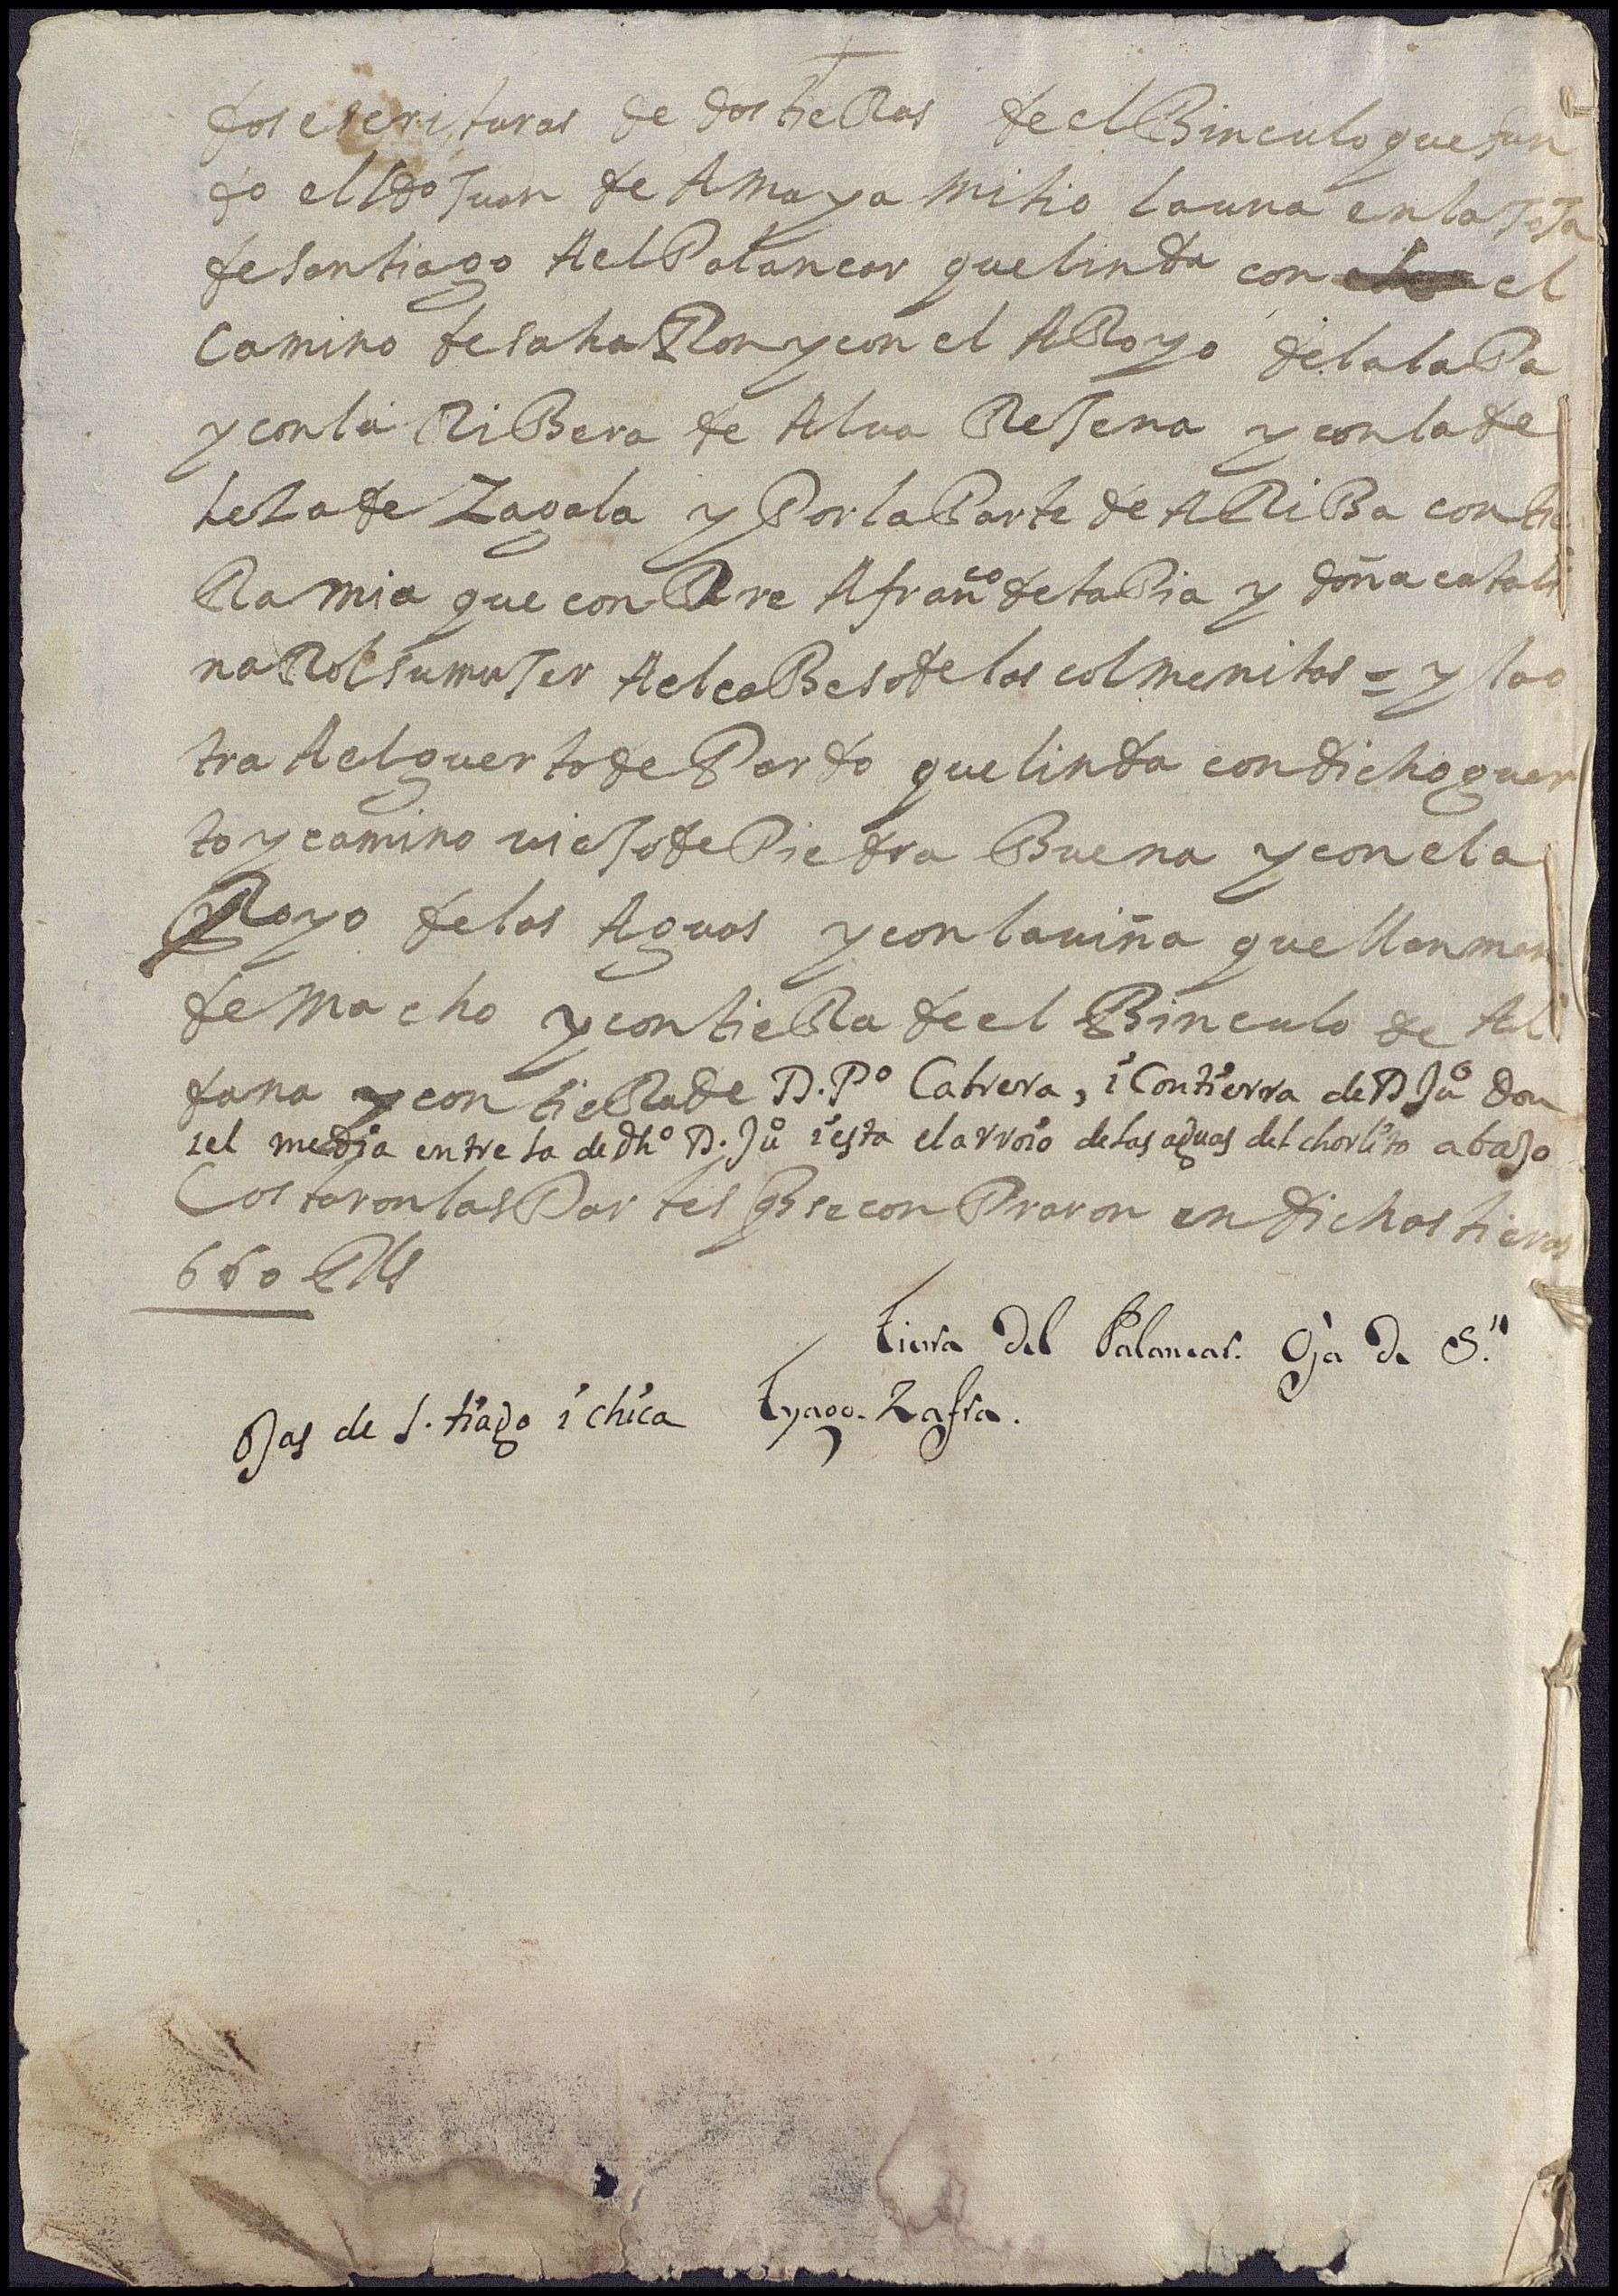 dos escrituras de dos tieRas de el Binculo que fun
do el Ldo Juan de Amaya mi tio la una en la oJa
de Santiago A el Palancar que linda con el
Camino de sahaRon y con el ARoyo de la laPa
y con la RiBera de Alua ReJena y con la de
hesa de Zagala y Por la Parte de ARiBa con tie
Ra mia que conPre A franco de taPia y doña catali
na Rol su muJer A el caBeso de las colmenitas = y la o
tra A el guerto de Pardo que linda con dicho guer
to y camino uieJo de Piedra Buena y con el a
Royo de las Aguas y con la uiña que llanman
de Macho y con tieRa de el Binculo de Al
dana y con tieRa de D. Po Cabrera, i Con tierra de D Juo Don
sel media entre la de dho D. Juo i esta el arroio de las aguas del chorlito abaJo
Costaron las Partes q se conPraron en dichas tieras
660 Rls
tierra del Palancar. Oja de S.n
tyago. Zafra.
oJas de S. tiago i chica